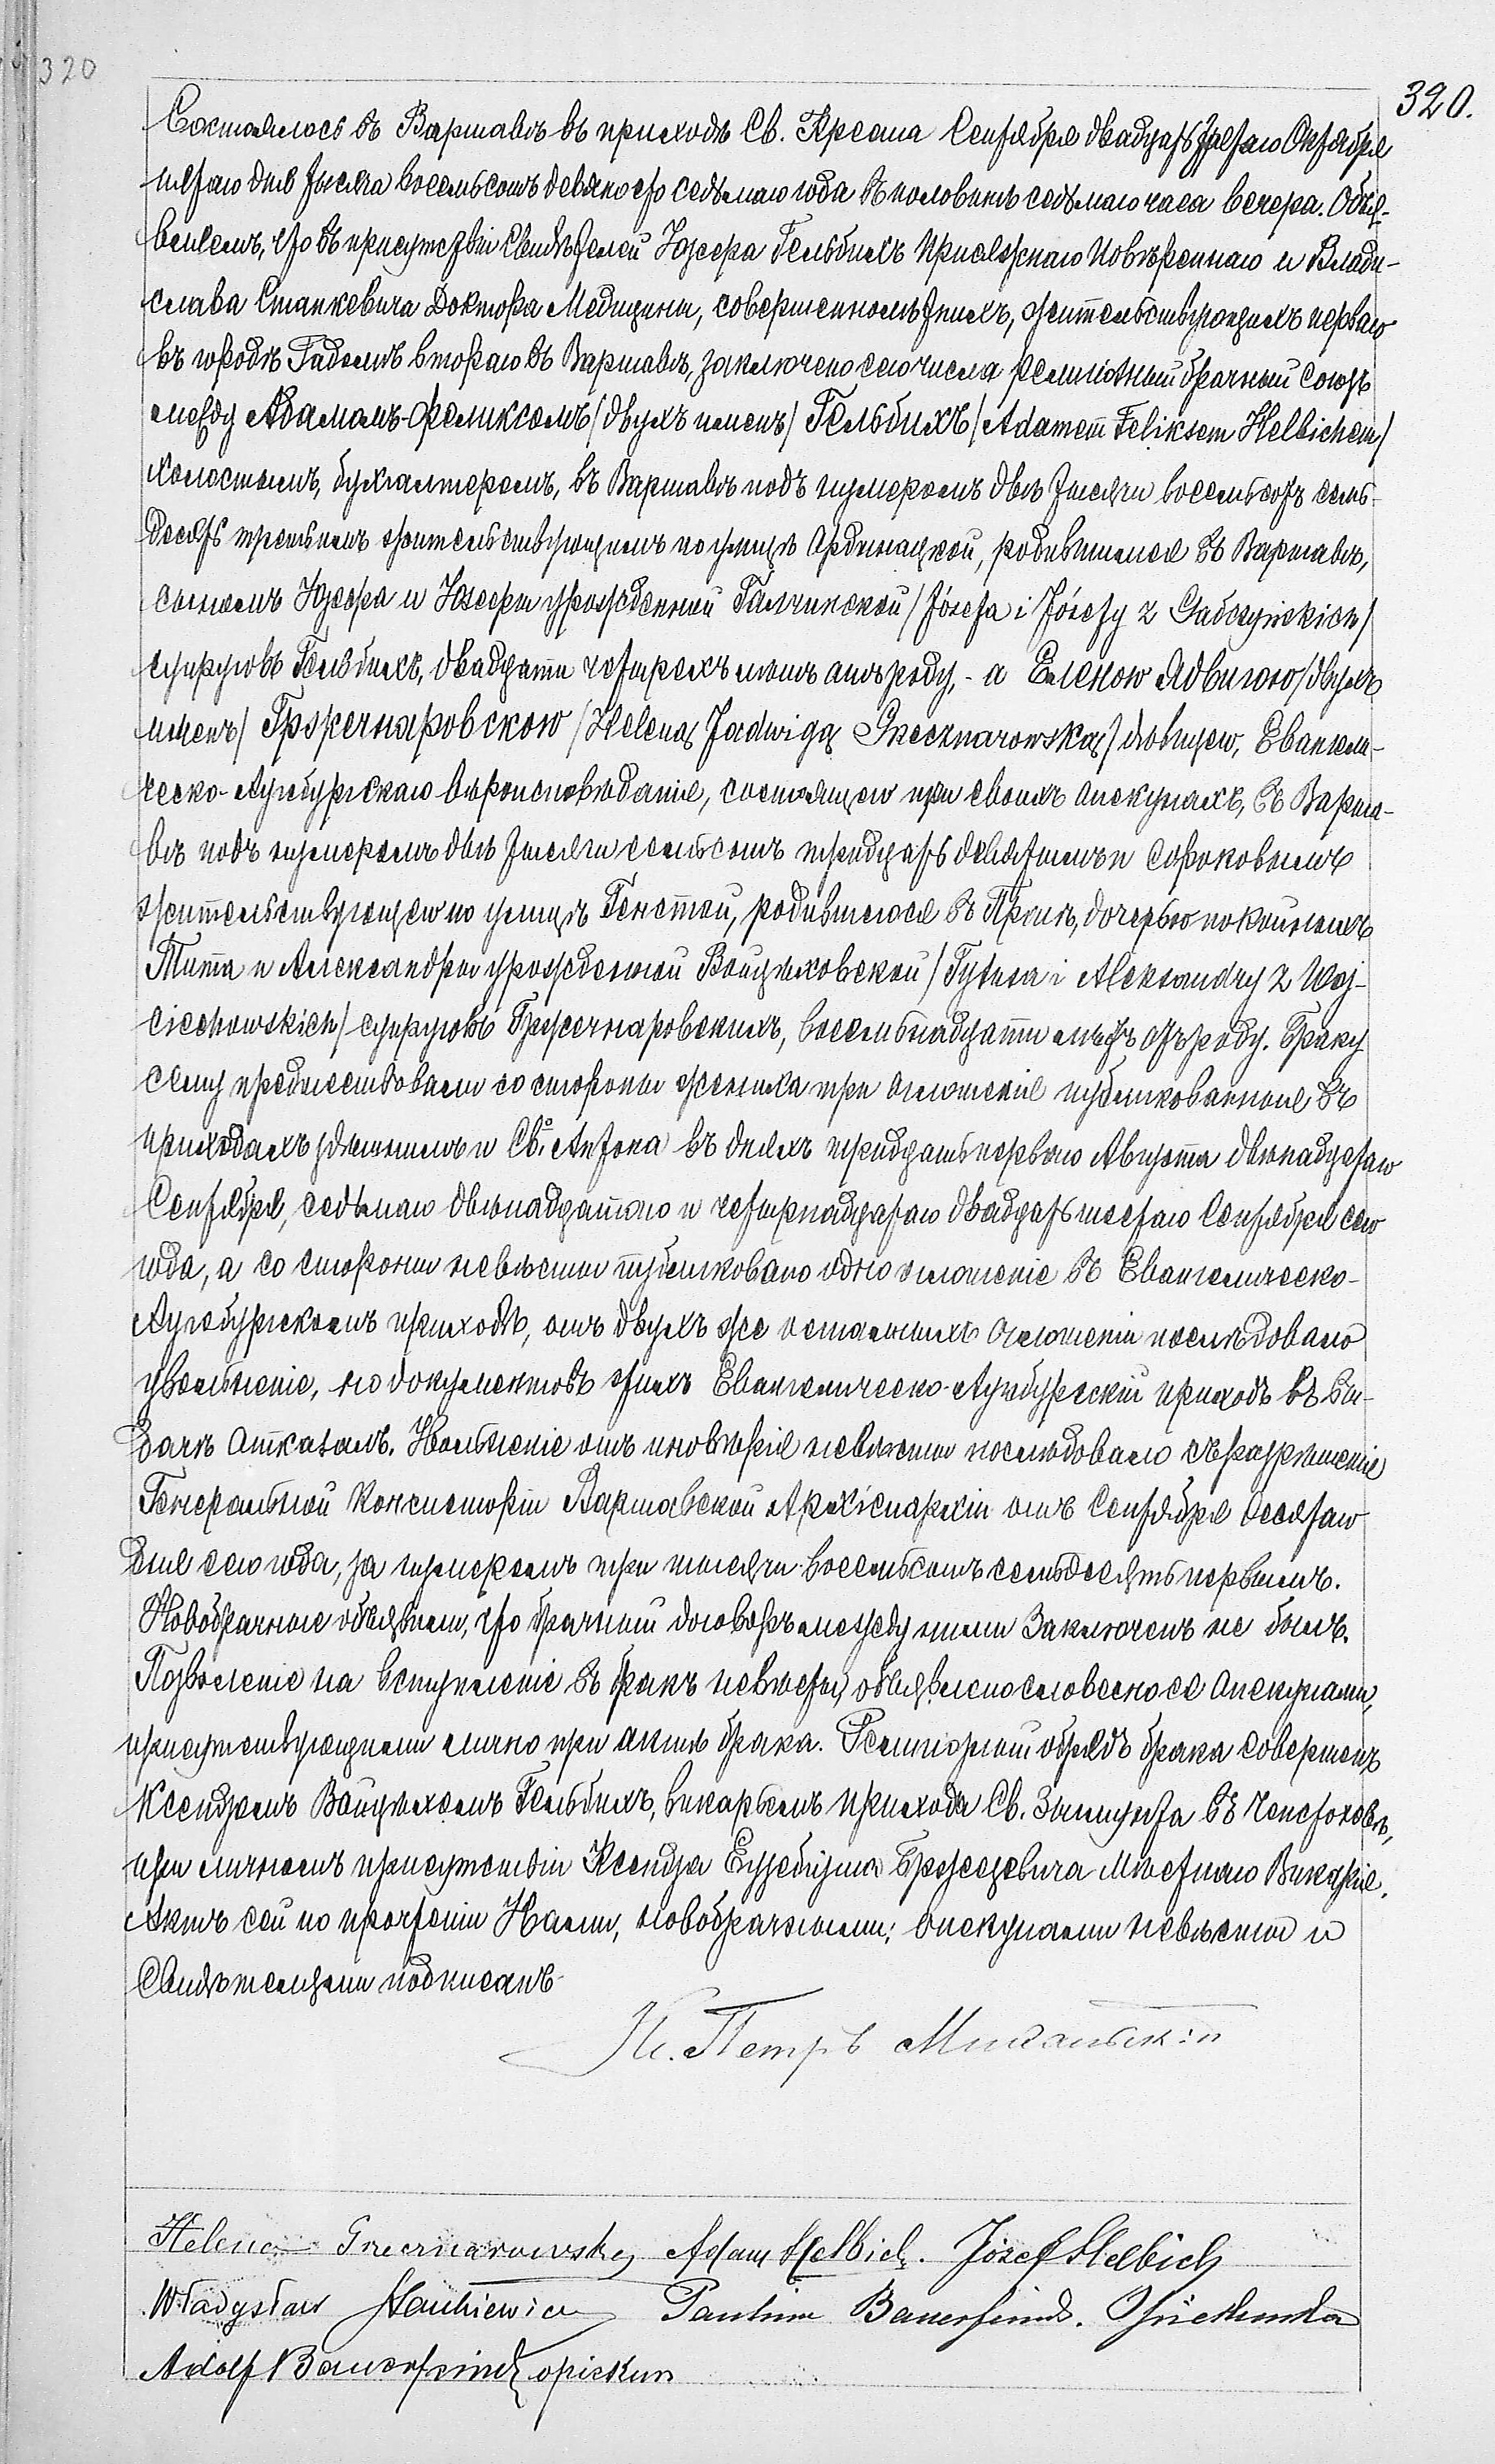 320
320.
Состоялось въ Варшавѣ въ приходѣ Св. Креста Сентября двадцать третьяго Октября
пятаго дня тысяча восемьсотъ девяносто седьмаго года въ половинѣ седьмаго часа вечера. Объя-
вляемъ, что въ присутствіи свидѣтелей Юзефа Гельбихъ Присяжнаго Повѣреннаго и Влади-
слава Станкевича Доктора Медицины, совершеннолѣтнихъ, жительствующихъ перваго
въ городѣ Радомѣ втораго въ Варшавѣ, заключено сего числа религіозный брачный союзъ
между Адамомъ-Феликсомъ /двухъ именъ/ Гельбихъ /Adamem Feliksem Helbichem/
холостымъ, бухгалтеромъ, въ Варшавѣ подъ нумеромъ двѣ тысячи восемьсотъ семь-
десятъ третьимъ жительствующимъ по улицѣ Ординацкой, родившимся въ Варшавѣ,
сыномъ Юзефа и Юзефы урожденной Галчинской /Józefa i Józefy z Gałczyńskich/
супруговъ Гельбихъ, двадцати четырехъ лѣтъ отъ роду, - и Еленою Ядвигою /двухъ
именъ/ Гржечнаровскою /Heleną Jadwigą Grzecznarowską/ дѣвицею, Евангели-
ческо-Аугсбургскаго вѣроисповѣданія, состоящею при своихъ опекунахъ, въ Варша-
вѣ подъ нумеромъ двѣ тысячи семьсотъ тридцать девятымъ и сороковымъ
жительствующею по улицѣ Генстой, родившеюся въ дочерью покойныхъ
Тита и Александры урожденной Войцѣховской /Tytusa i Aleksandry z Woj-
ciechowskich/ супруговъ Гржечнаровскихъ, восемьнадцати лѣтъ отъ роду. Браку
сему предшествовали со стороны жениха три оглашенія публикованныя въ
приходахъ здѣшнемъ и Св. Антона въ дняхъ тридцать перваго Августа двѣнадцатаго
Сентября, седьмаго двѣнадцатаго и четырнадцатаго двадцать шестаго Сентября сего
года, а со стороны невѣсты публиковано одно оглашеніе въ Евангелическо-
Аугсбургскомъ приходѣ, отъ двухъ же остальныхъ оглашеній послѣдовало
увольненіе, но документовъ этихъ Евангелическо-Аугсбургскій приходъ въ вы-
дачѣ отказалъ. отъ иновѣрія невѣсты послѣдовало съ разрѣшенія
Генеральной Консисторіи Варшавской Архіепархіи отъ Сентября десятаго
дня сего года, за нумеромъ три тысячи восемьсотъ семьдесятъ первымъ.
Новобрачные объявили, что брачный договоръ между ними заключенъ не былъ.
Позволеніе на вступленіе въ бракъ невѣсты, объявлено словесно ея опекунами,
присутствующими лично при актѣ брака. Религіозный обрядъ брака совершенъ
Ксендзомъ Войцѣхомъ Гельбихъ, викаріемъ прихода Св. Зыгмунта въ Ченстоховѣ,
при личномъ присутствіи Ксендза Еузебіуша Бржезевича Мѣстнаго Викарія.
Актъ сей по прочтеніи Нами, новобрачными, опекунами невѣсты и
свидѣтелями подписанъ
Кс. Петръ
Helena Grzecznarowska Adam Helbich. Józef Helbich
Władysław Stankiewicz Paulina Bauerfeind. Opiekunka
Adolf Bauerfeind opiekun